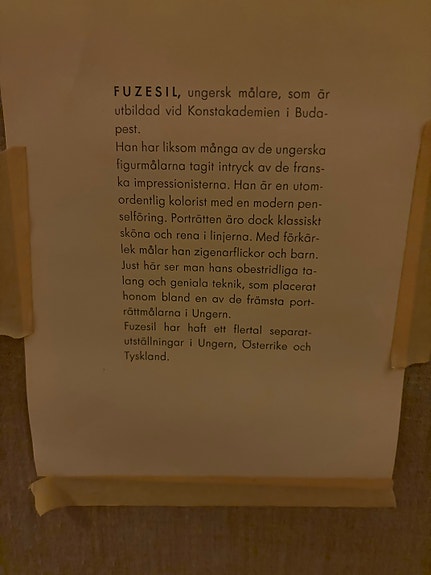 FUZESIL, ungersk målare, som är
utbildad vid Konstakademien i Buda-
pest.
Han har liksom många av de ungerska
figurmålarna tagit intryck av de frans-
ka impressionisterna. Han är en utom-
ordentlig kolorist med en modern pen-
selföring. Porträtten äro dock klassiskt
sköna och rena i linjerna. Med förkär-
lek målar han zigenarflickor och barn.
Just här ser man hans obestridliga ta-
lang och geniala teknik, som placerat
honom bland en av de främsta port-
rättmålarna i Ungern.
Fuzesil har haft ett flertal separat-
utställningar i Ungern, Österrike och
Tyskland.